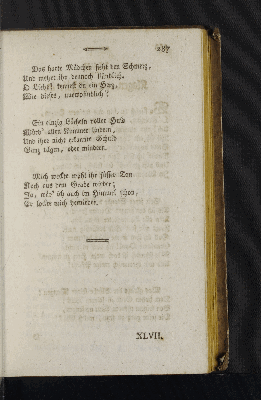 287
Das harte Mädchen sieht den Schmerz,
Und wehrt ihr dennoch
O Liebe! kennst du ein Herz,
Wie dieses, unversöhnlich?
Ein einzig Lächeln voller Huld
Würd' allen Kummer lindern,
Und ihre nicht erkannte Schuld
Ganz tilgen, oder mindern.
Mich weckte wohl ihr süßer Ton
Noch aus dem Grabe wieder;
Ja, wär' ich auch im Himmel schon,
Er lockte mich hernieder.
XLVII.